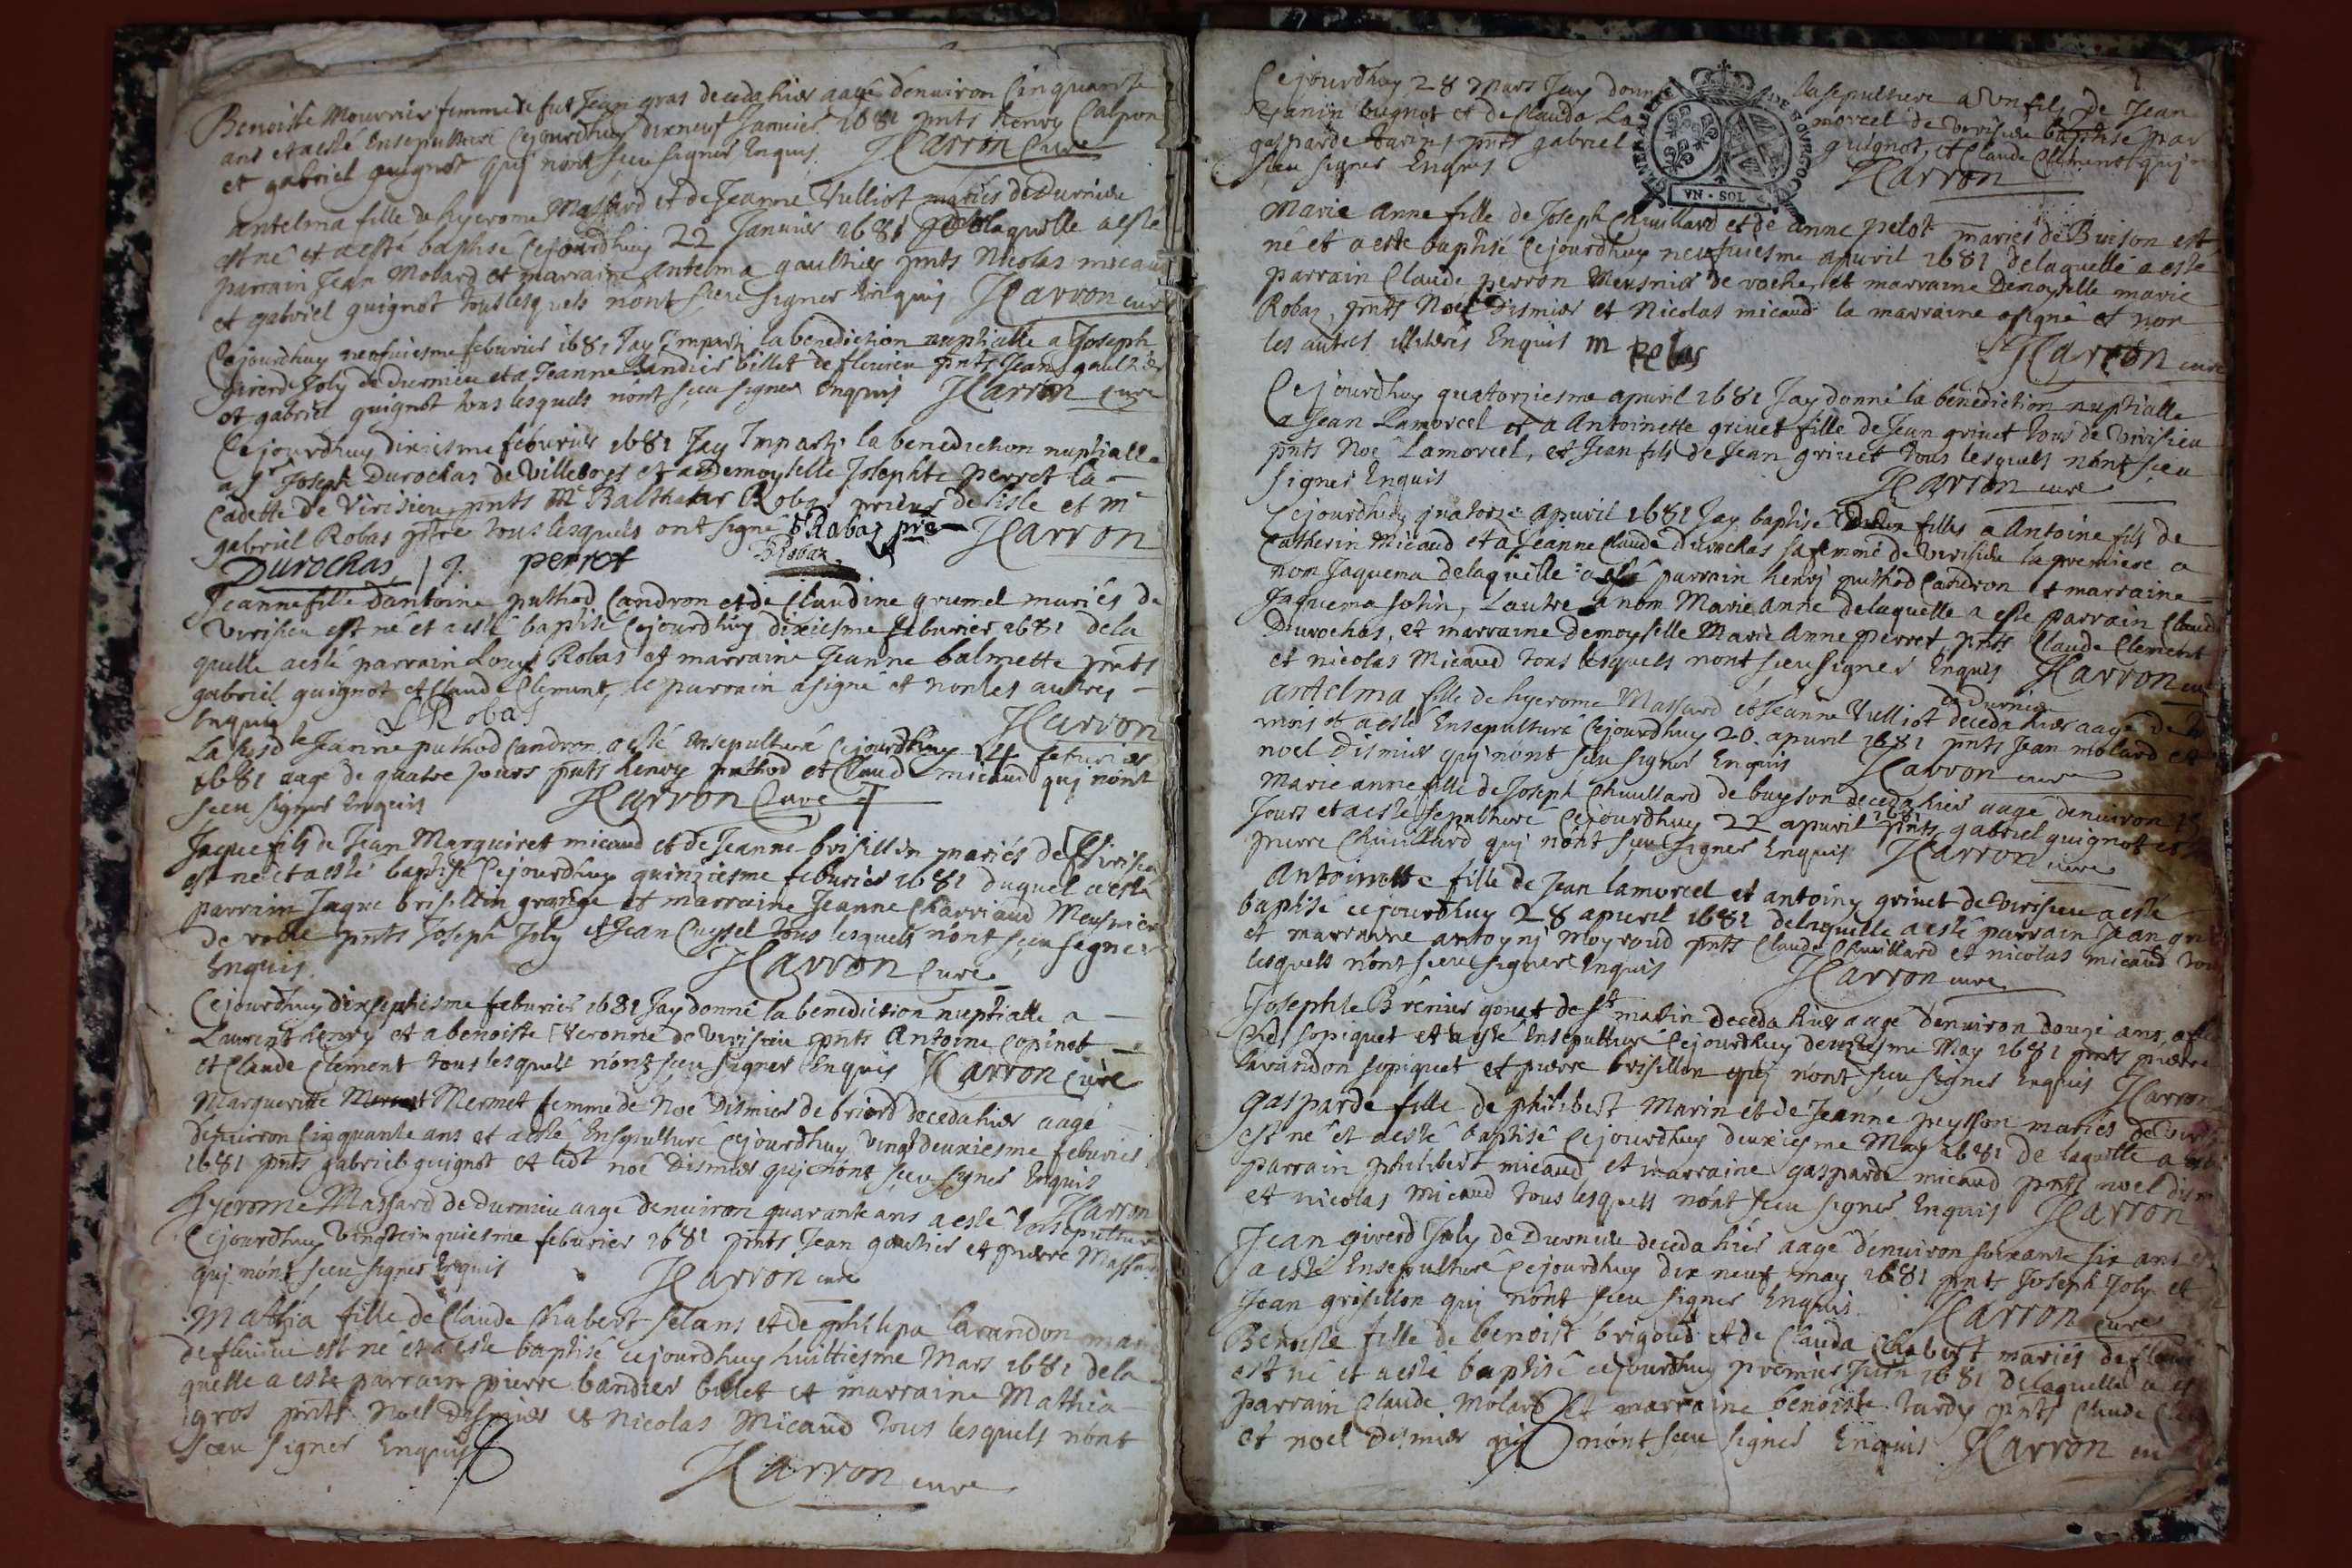 Benoiste Mouvrier femme de fut Jean gras deceda hier aagé denuiron Cinquante
ans et a esté Ensepulturé Cejourdhuy dixneuf Januier 1681 pnts henry Calpon
et gabriel guignot quj nont sceu signer Enquis Harron Cure
antelma fille de hyerome Massard et de Jeanne Vulliot mariés de Durnieu
est né et a esté baptisé Cejourdhuy 22 Januier 1681 de laquelle a esté
parrain Jean Molard et marraine antelma gaulthier pnts Nicolas micaud
et gabriel guignot tous lesquels nont sceu signer Enquis Harron cure
Cejourdhuy neufuiesme feburier 1681 Jay Imparti la benediction nuptialle a Joseph
girerd Joly de Durnieu et a Jeanne bandier billet de fleurieu pnts Jean gaulthier
et gabriel guignot tous lesquels nont sceu signer Enquis Harron cure
Cejourdhuy dixiesme feburier 1681 Jay Imparti la benediction nuptialle
a Sr Joseph Durochas de Villeboys et a Demoyselle Josephte perret la
Cadette de Virisieu pnts Mr Balthasar Robas prieur de lisle et mr
gabriel Robas ptre tous lesquels ont signé Robas pre Harron
Durochas J. perret BRobaz
Jeanne fille dantoine puthod Candron et de Claudine grumel mariés de
Virisieu est né et a esté baptisé Cejourdhuy dixiesme feburier 1681 dela
quelle a esté parrain Louys Robas et marraine Jeanne balmette pnts
gabriel guignot et Claude Clement, le parrain a signé et non les autres
Enquis L Robas Harron
La susdte Jeanne puthod Candron a esté Ensepulturé Cejourdhuy 14 feburier
1681 aagé de quatre jours pnts henry puthod et Claude micaud quj nont
sceu signer Enquis Harron Cure
Jaque fils de Jean Marguiret micaud et de Jeanne brisillon mariés de Virisieu
est né et a esté baptisé Cejourdhuy quinziesme feburier 1681 duquel a esté
parrain Jaque brisillon grange et marraine Jeanne Charriaud Meusnier
de roche pnts Joseph Joly et Jean Cuysel tous lesquels nont sceu signer
Enquis Harron Cure
Cejourdhuy dixseptiesme feburier 1681 Jay donné la benediction nuptialle a
Laurent henry et a benoiste Veronne de Virisieu pnts Antoine Copinet
et Claude Clement tous lesquels nont sceu signer Enquis Harron Cure
Margueritte Mermet femme de Noé Dismier de briord deceda hier aagé
denuiron Cinquante ans et a esté Ensepulturé Cejourdhuy Vingtdeuxiesme feburier
1681 pnts gabriel guignot et ledt noé Dismier quj nont sceu signer Enquis
Harron
hyerome Massard de Durnieu aagé denuiron quarante ans a esté Ensepulturé
Cejourdhuy Vingtcinquiesme feburier 1681 pnts Jean gaultier et pierre Massard
quj nont sceu signer Enquis Harron cure
Mathia fille de Claude Chabert Selans et de philipa larandon mariés
de flurieu est né et a esté baptisé cejourdhuy huittiesme Mars 1681 dela
quelle a esté parrain pierre bandier billet et marraine Mathia
gros pnts Noel Dismier et Nicolas Micaud tous lesquels nont
sceu signer Enquis
Harron cure
2
Cejourdhuy 28 Mars Jay donné la sepulture a Vn fils de Jean
Janin bugnot et de Clauda La morcel de Virisieu baptisé par
gasparde pnts gabriel guignot, et Claude Clement quj
sceu signer Enquis Harron
GENERALITE DE BOURGOGNE
VN · SOL
Marie anne fille de Joseph Chuillard et de anne pelot mariés de Buison est
né et a esté baptisé Cejourdhuy neufuiesme apuril 1681 delaquelle a esté
parrain Claude perron Meusnier de roche, et marraine Demoyselle marie
Robaz, pnts Noel Dismier et Nicolas micaud la marraine a signé et non
les autres illiterés Enquis m Harron cure
Cejourdhuy quatorziesme apuril 1681 Jay donné la benediction nuptialle
a Jean Lamorcel et a Antoinette griuet fille de Jean griuet tous de Virisieu
pnts Noé Lamorcel, et Jean fils de Jean griuet tous lesquels nont sceu
signer Enquis Harron cure
Cejourdhuy quatorze apuril 1681 Jay baptisé deux filles a Antoine fils de
Catherin Micaud et a Jeanne Claude Durochas sa femme de Virisieu la premiere a
nom Jaquema delaquelle a esté parrain henry puthod Candron et marraine
Jaquema Jolin, Lautre a nom Marie anne delaquelle a esté parrain Claude
Durochas, et marraine demoyselle Marie Anne perret, pnts Claude Clement
et nicolas Micaud tous lesquels nont sceu signer Enquis Harron cure
de Durnieu
antelma fille de hyerome Massard et Jeanne Vulliot deceda hier aagé de
mois et a esté Ensepulturé Cejourdhuy 20 apuril 1681 pnts Jean molard et
noel Dismier quj nont sceu signer Enquis Harron cure
Marie anne fille de Joseph Chuillard de buyson deceda hier aagé denuiron
Jours et a esté sepulturé Cejourdhuy 22 apuril 1681 pnts gabriel guignot et
pierre Chuillard quj nont sceu signer Enquis Harron cure
Antoinette fille de Jean lamorcel et antoiny griuet de Virisieu a esté
baptisé cejourdhuy 28 apuril 1681 delaquelle a esté parrain Jean
et marraine antoyny Moyroud pnts Claude Chuillard et nicolas micaud tous
lesquels nont sceu signer Enquis Harron cure
Josephte Brenier gonet de St matin deceda hier aagé denuiron douze ans,
Chés sopiquet et a esté Ensepulturé Cejourdhuy deuxiesme May 1681 pnts pierre
larandon sopiquet et pierre brisillon quj nont sceu signer Enquis Harron
gasparde fille de philibert Marin et de Jeanne peysson mariés de
est né et a esté baptisé Cejourdhuy deuxiesme May 1681 de laquelle a esté
parrain philibert micaud et marraine gasparde micaud pnts noel dism
et nicolas micaud tous lesquels nont sceu signer Enquis Harron
Jean girerd Joly de Durnieu deceda hier aagé denuiron soixante six ans et
a esté Ensepulturé Cejourdhuy dix neuf may 1681 pnts Joseph Joly et
Jean grisillon quj nont sceu signer Enquis Harron cure
Benoiste fille de benoist brigoud et de Clauda Chabert mariés de
est né et a esté baptisé cejourdhuy premier Juin 1681 delaquelle a
parrain Claude Molard et marraine benoiste tardy pnts Claude
et noel Dismier quj nont sceu signer Enquis Harron cu